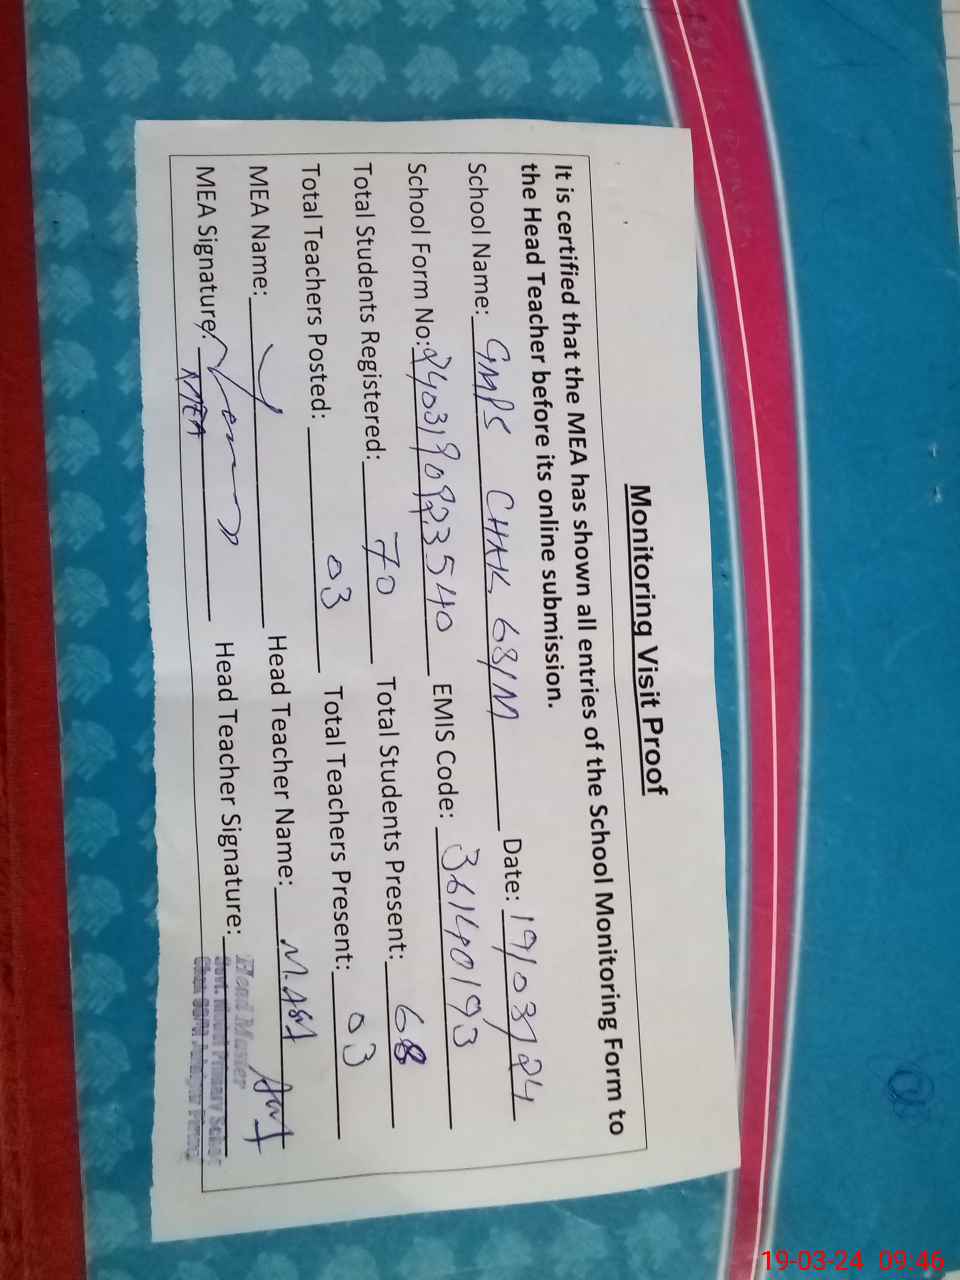 Monitoring Visit Proof
It is certified that the MEA has shown all entries of the School Monitoring Form to
the Head Teacher before its online submission.
School Name: GMPS CHAK 68/M Date: 19/03/24
School Form No: 2403190923540 EMIS Code: 36140193
Total Students Registered: 70 Total Students Present: 68
Total Teachers Posted: 03 Total Teachers Present: 03
MEA Name: Head Teacher Name: M. Asif
MEA Signature: Head Teacher Signature:
MEA
Head Master
Govt. Primary School
19-03-24 09:46